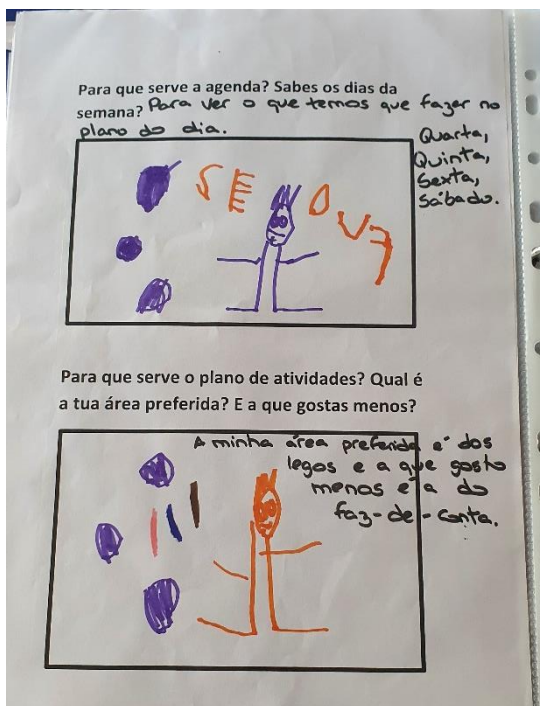 Para que serve a agenda? Sabes os dias da
semana? Para ver o que temos que fazer no
plano do dia.
Quarta,
Quinta,
Sexta,
Sábado.
S E D V 7
Para que serve o plano de atividades? Qual é
a tua área preferida? E a que gostas menos?
A minha área preferida é dos
legos e a que gosto
menos é a do
faz-de-conta.